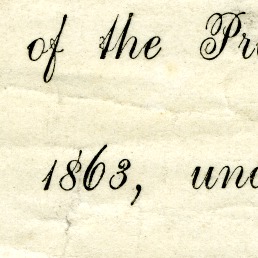 of the Pr
1863, un